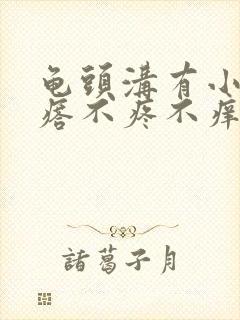 龟頭溝有小
痞不疼不痒
諸葛子月